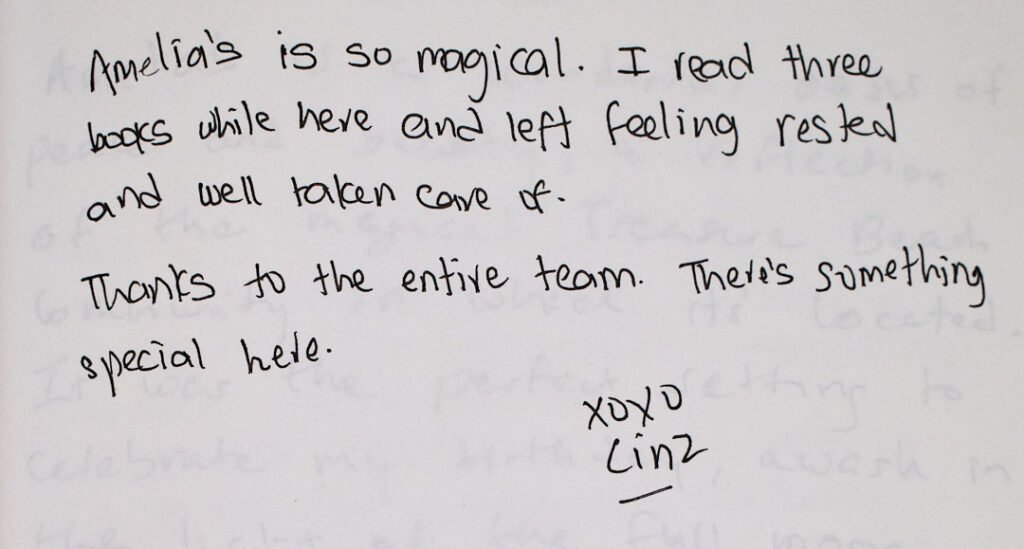 Amelia's is so magical. I read three
books while here and left feeling rested
and well taken care of.
Thanks to the entire team. There's something
special here.
xoxo
Linz